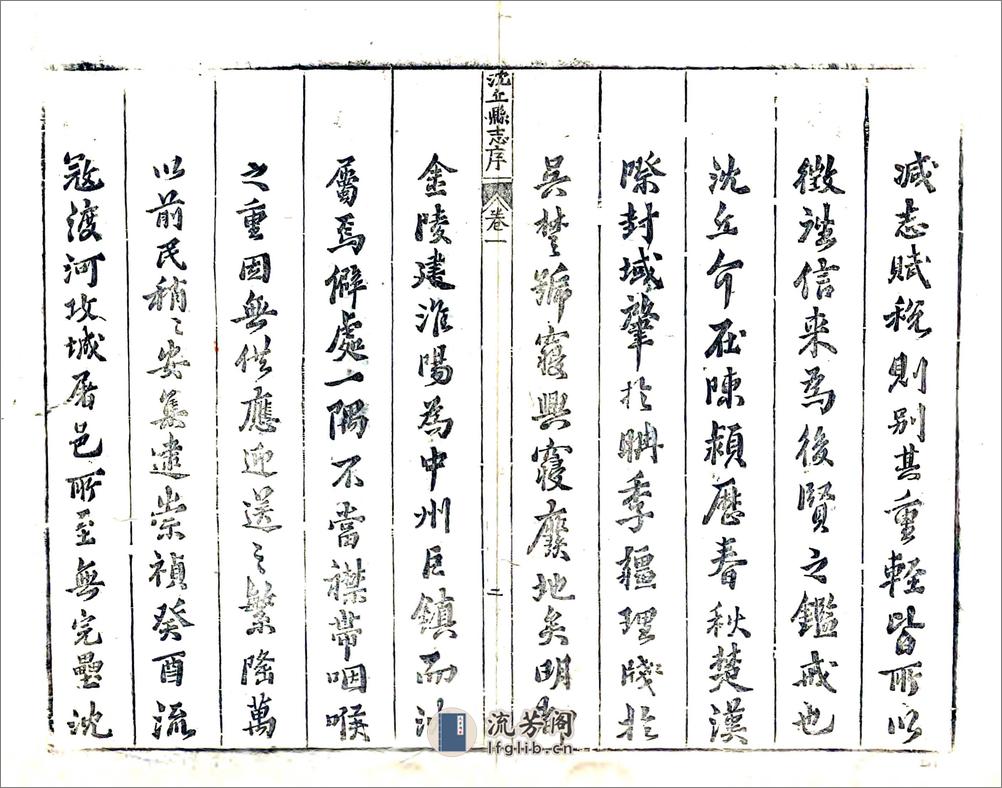 減志賦稅則别其重輕皆所以
徵法信来為後賢之鑑戒也
沈丘介在陳頴歴春秋楚漢
際封域肇於 季疆理牋於
吳楚號寖興寖廢地矣明
金陵建淮陽為中州巨鎮而
屬焉僻處一隅不當襟帶咽喉
之重困無供應迎送之繁隆萬
以前民稍〻安集逮崇禎癸酉流
冦渡河攻城屠邑所至無完壘沈
沈丘縣志序
卷一
二
流芳阁
lfglib.cn